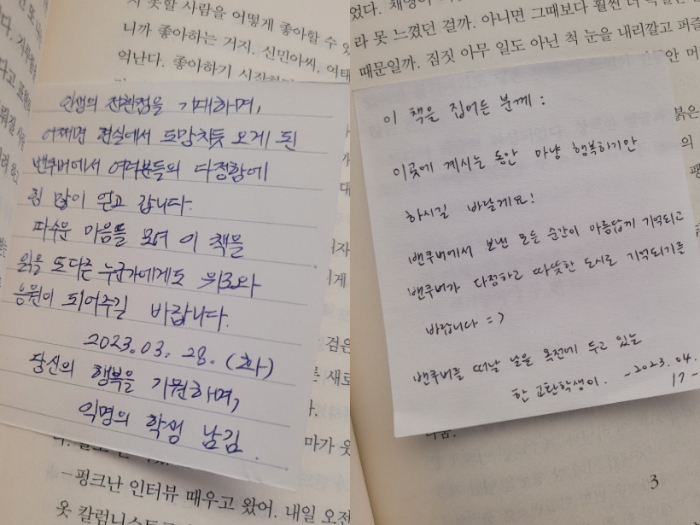 지 못할 사람을 어떻게 좋아할 수 있
니까 좋아하는 거지. 신민아씨, 이태
억난다. 좋아하기 시작
인생의 전환점을 기대하며,
어쩌면 현실에서 도망치듯 오게 된
밴쿠버에서 여러분들의 다정함에
힘 많이 얻고 갑니다.
따수운 마음들 모여 이 책을
읽을 또다른 누군가에게도 위로와
응원이 되어주길 바랍니다.
2023.03.28.(화)
당신의 행복을 기원하며,
익명의 학생 남김.
마가 웃
-펑크난 인터뷰 때우고 왔어. 내일 오전
옷 칼럼니스트
라 못 느꼈던 걸까. 아니면 그때보다 훨씬 더
때문일까. 짐짓 아무 일도 아닌 척 눈을 내리깔고 퍼즐
이 책을 집어든 분께 :
이곳에 계시는 동안 마냥 행복하기만
하시길 바랄게요!
밴쿠버에서 보낸 모든 순간이 아름답게 기억되고
밴쿠버가 다정하고 따뜻한 도시로 기억되기를
바랍니다 =)
밴쿠버를 떠날 날을 목전에 두고 있는
한 교환학생이. -2023.04.
17-
3